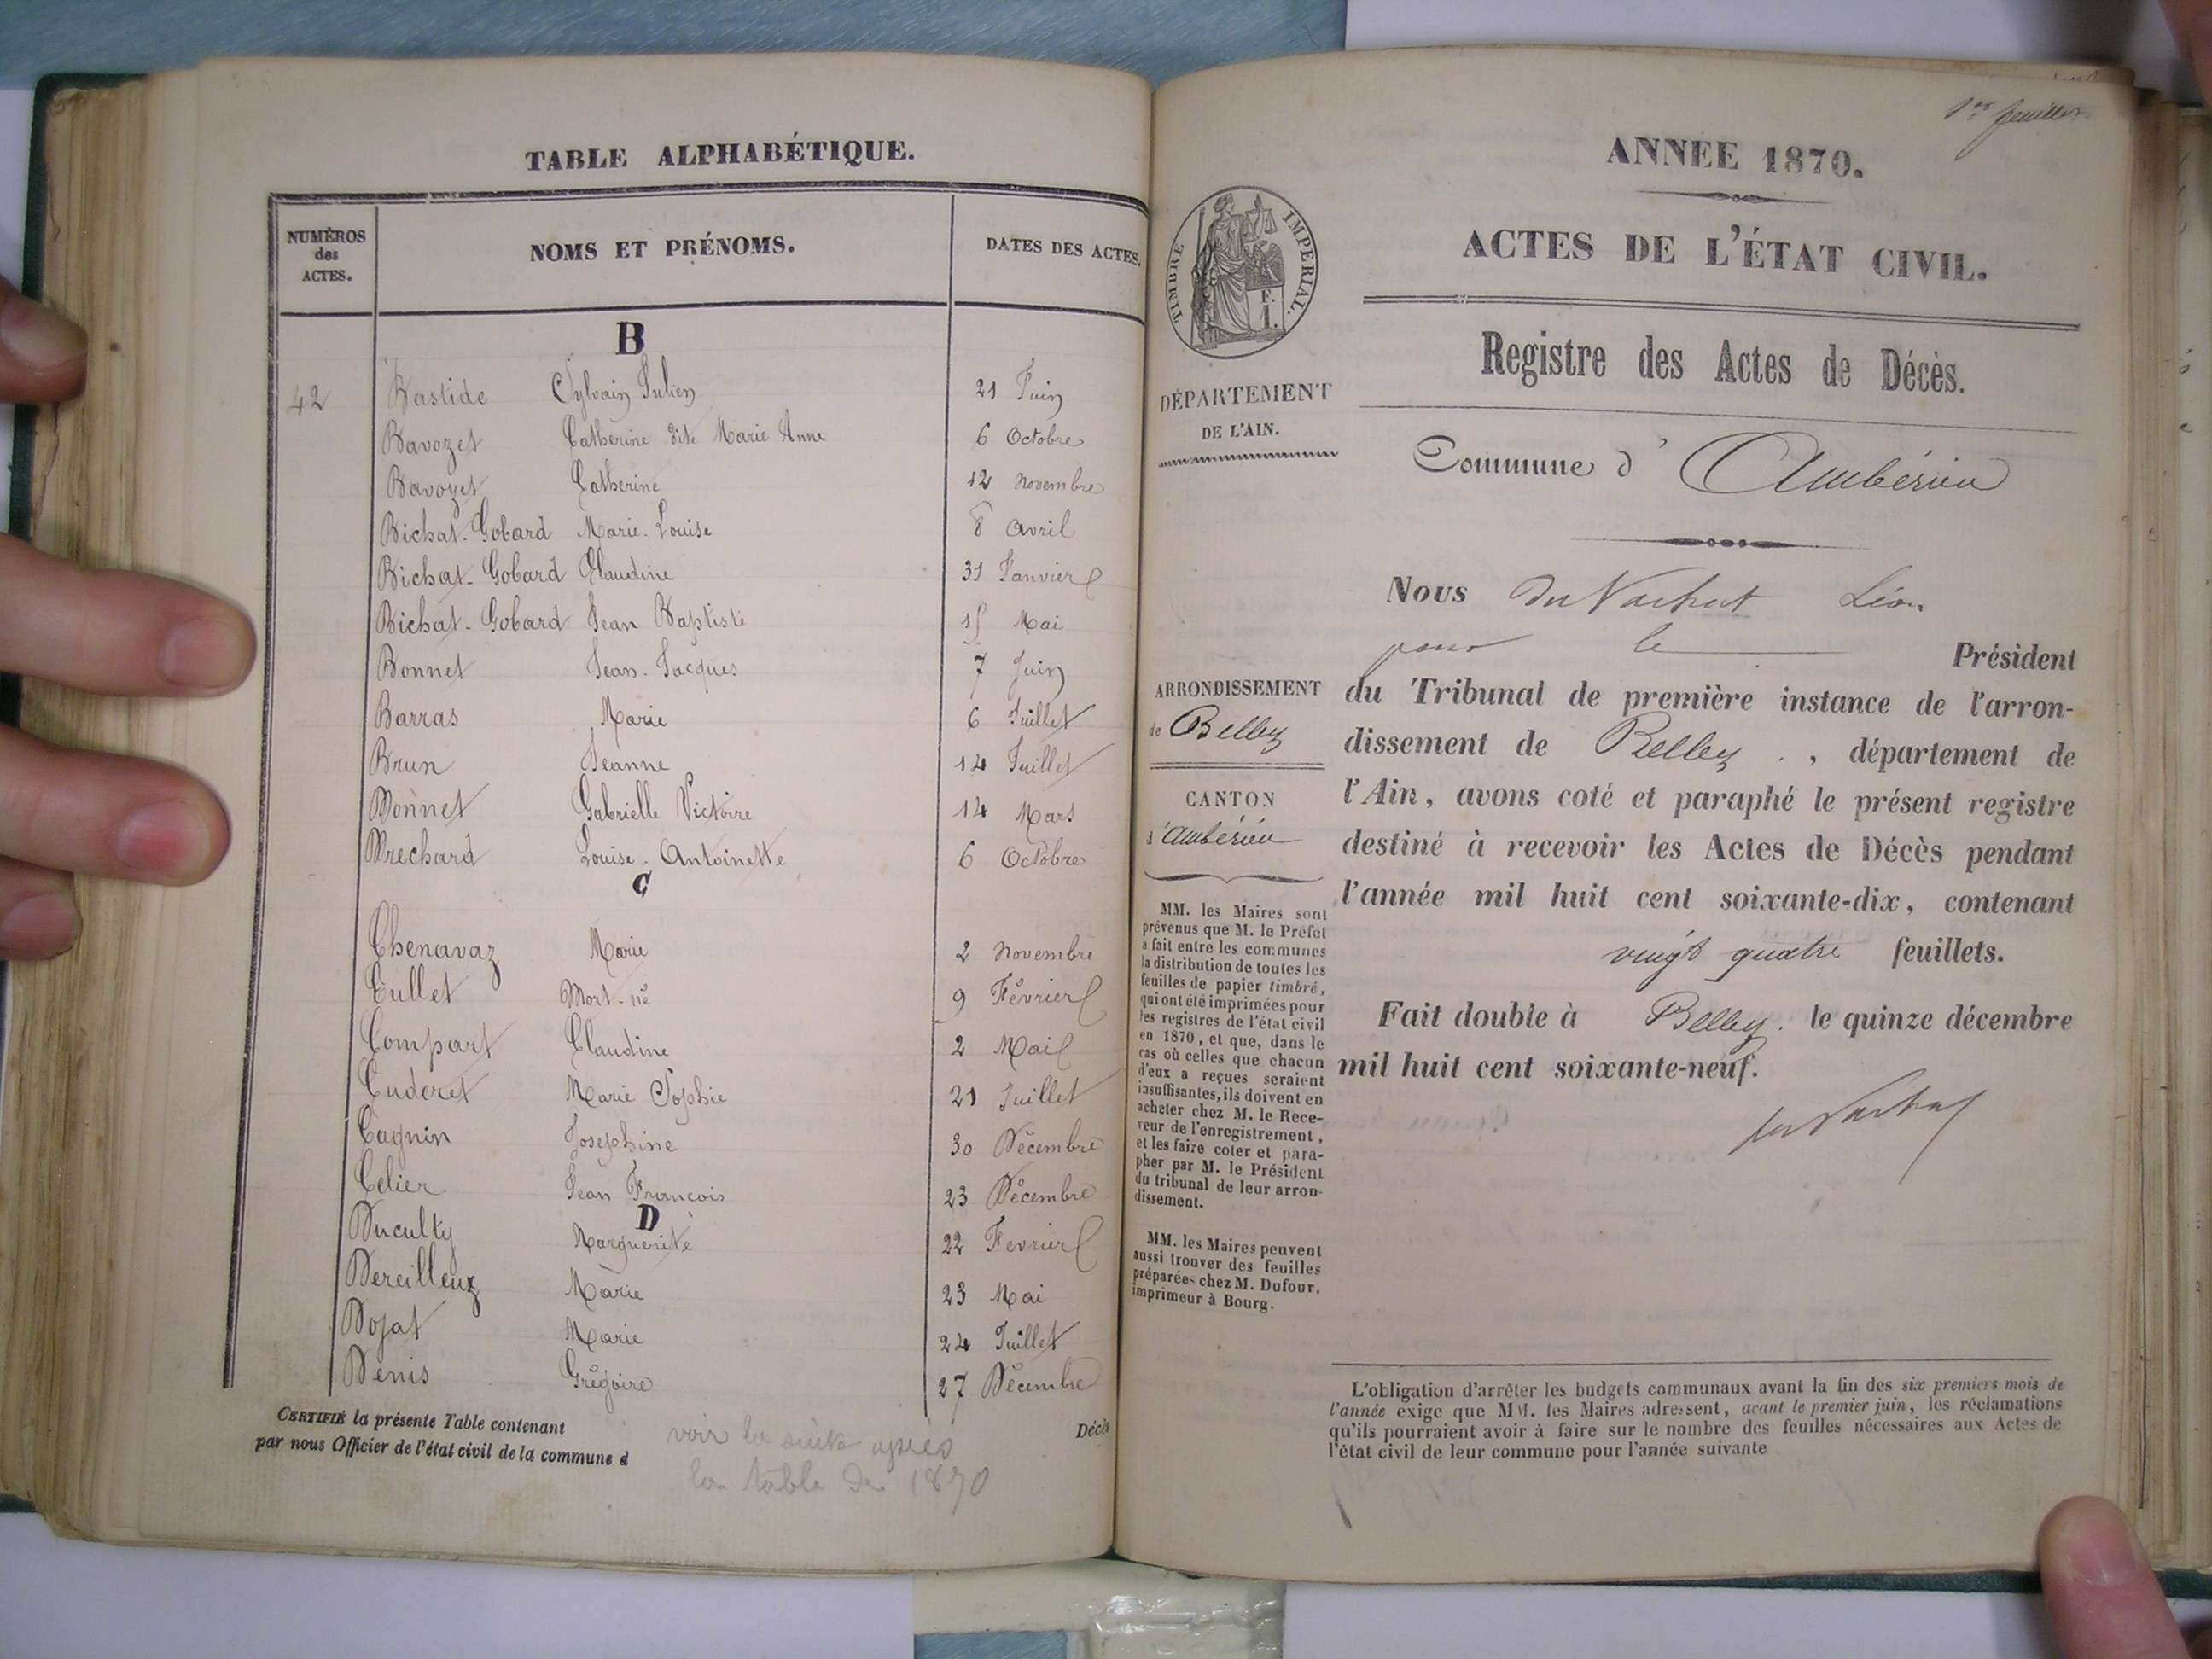 TABLE ALPHABÉTIQUE.
NUMÉROS des ACTES.
NOMS ET PRÉNOMS.
DATES DES ACTES.
B
42 Bastide Sylvain Julien 21 Juin
Bavozet Catherine dite Marie Anne 6 Octobre
Bavozet Catherine 12 Novembre
Bichat-Gobard Marie-Louise 8 Avril
Bichat-Gobard Claudine 31 Janvier
Bichat-Gobard Jean Baptiste 15 Mai
Bonnet Jean-Jacques 7 Juin
Barras Marie 6 Juillet
Brun Jeanne 14 Juillet
Bonnet Gabrielle Victoire 14 Mars
Brechard Louise-Antoinette 6 Octobre
C
Chenavaz Marie 2 Novembre
Cullet Mort-né 9 Février
Compart Claudine 2 Mai
Cuderet Marie Sophie 21 Juillet
Cagnin Josephine 30 Décembre
Celier Jean François 23 Décembre
D
Duculty Marguerite 22 Fevrier
Dereilleux Marie 23 Mai
Dojat Marie 24 Juillet
Denis Grégoire 27 Décembre
CERTIFIÉ la présente Table contenant
Décès
par nous Officier de l'état civil de la commune d
voir la suite après
la table de 1870
1er feuillet
ANNÉE 1870.
ACTES DE L'ÉTAT CIVIL.
TIMBRE IMPÉRIAL.
E.
1.
DÉPARTEMENT
DE L'AIN.
Registre des Actes de Décès.
Commune d' Ambérieu
ARRONDISSEMENT
de Belley
CANTON
d'Ambérieu
MM. les Maires sont
prévenus que M. le Préfet
a fait entre les communes
la distribution de toutes les
feuilles de papier timbré,
qui ont été imprimées pour
les registres de l'état civil
en 1870, et que, dans le
cas où celles que chacun
d'eux a reçues seraient
insuffisantes, ils doivent en
acheter chez M. le Rece-
veur de l'enregistrement,
et les faire coter et para-
pher par M. le Président
du tribunal de leur arron-
dissement.
MM. les Maires peuvent
aussi trouver des feuilles
préparées chez M. Dufour,
imprimeur à Bourg.
Nous Léon
pour le Président
du Tribunal de première instance de l'arron-
dissement de Belley, département de
l'Ain, avons coté et paraphé le présent registre
destiné à recevoir les Actes de Décès pendant
l'année mil huit cent soixante-dix, contenant
vingt quatre feuillets.
Fait double à Belley. le quinze décembre
mil huit cent soixante-neuf.
L'obligation d'arrêter les budgets communaux avant la fin des six premiers mois de
l'année exige que MM. les Maires adressent, avant le premier juin, les réclamations
qu'ils pourraient avoir à faire sur le nombre des feuilles nécessaires aux Actes de
l'état civil de leur commune pour l'année suivante